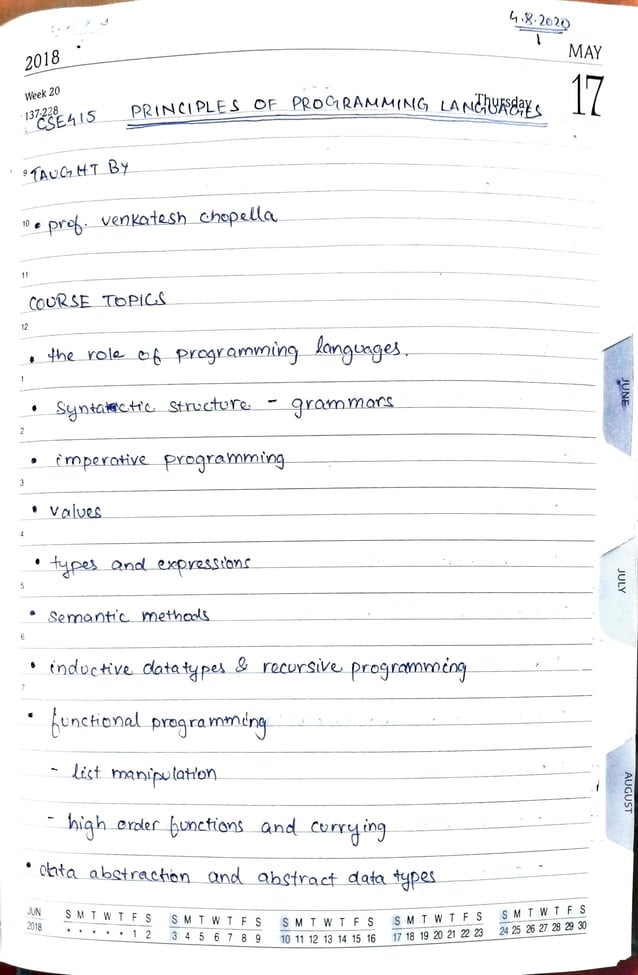 4.8.2020
1
2018
MAY
Week 20
137-228
Thursday
17
CSE415 PRINCIPLES OF PROGRAMMING LANGUAGES
9 TAUGHT BY
10 • prof. venkatesh choppella
11
COURSE TOPICS
12
• the role of programming languages.
1
• syntactic structure - grammars
2
• imperative programming
3
• values
4
• types and expressions
5
• semantic methods
6
• inductive datatypes & recursive programming
7
• functional programming
- list manipulation
- high order functions and currying
• data abstraction and abstract data types
JUNE
JULY
AUGUST
JUN S M T W T F S S M T W T F S S M T W T F S S M T W T F S S M T W T F S
2018 • • • • • 1 2 3 4 5 6 7 8 9 10 11 12 13 14 15 16 17 18 19 20 21 22 23 24 25 26 27 28 29 30